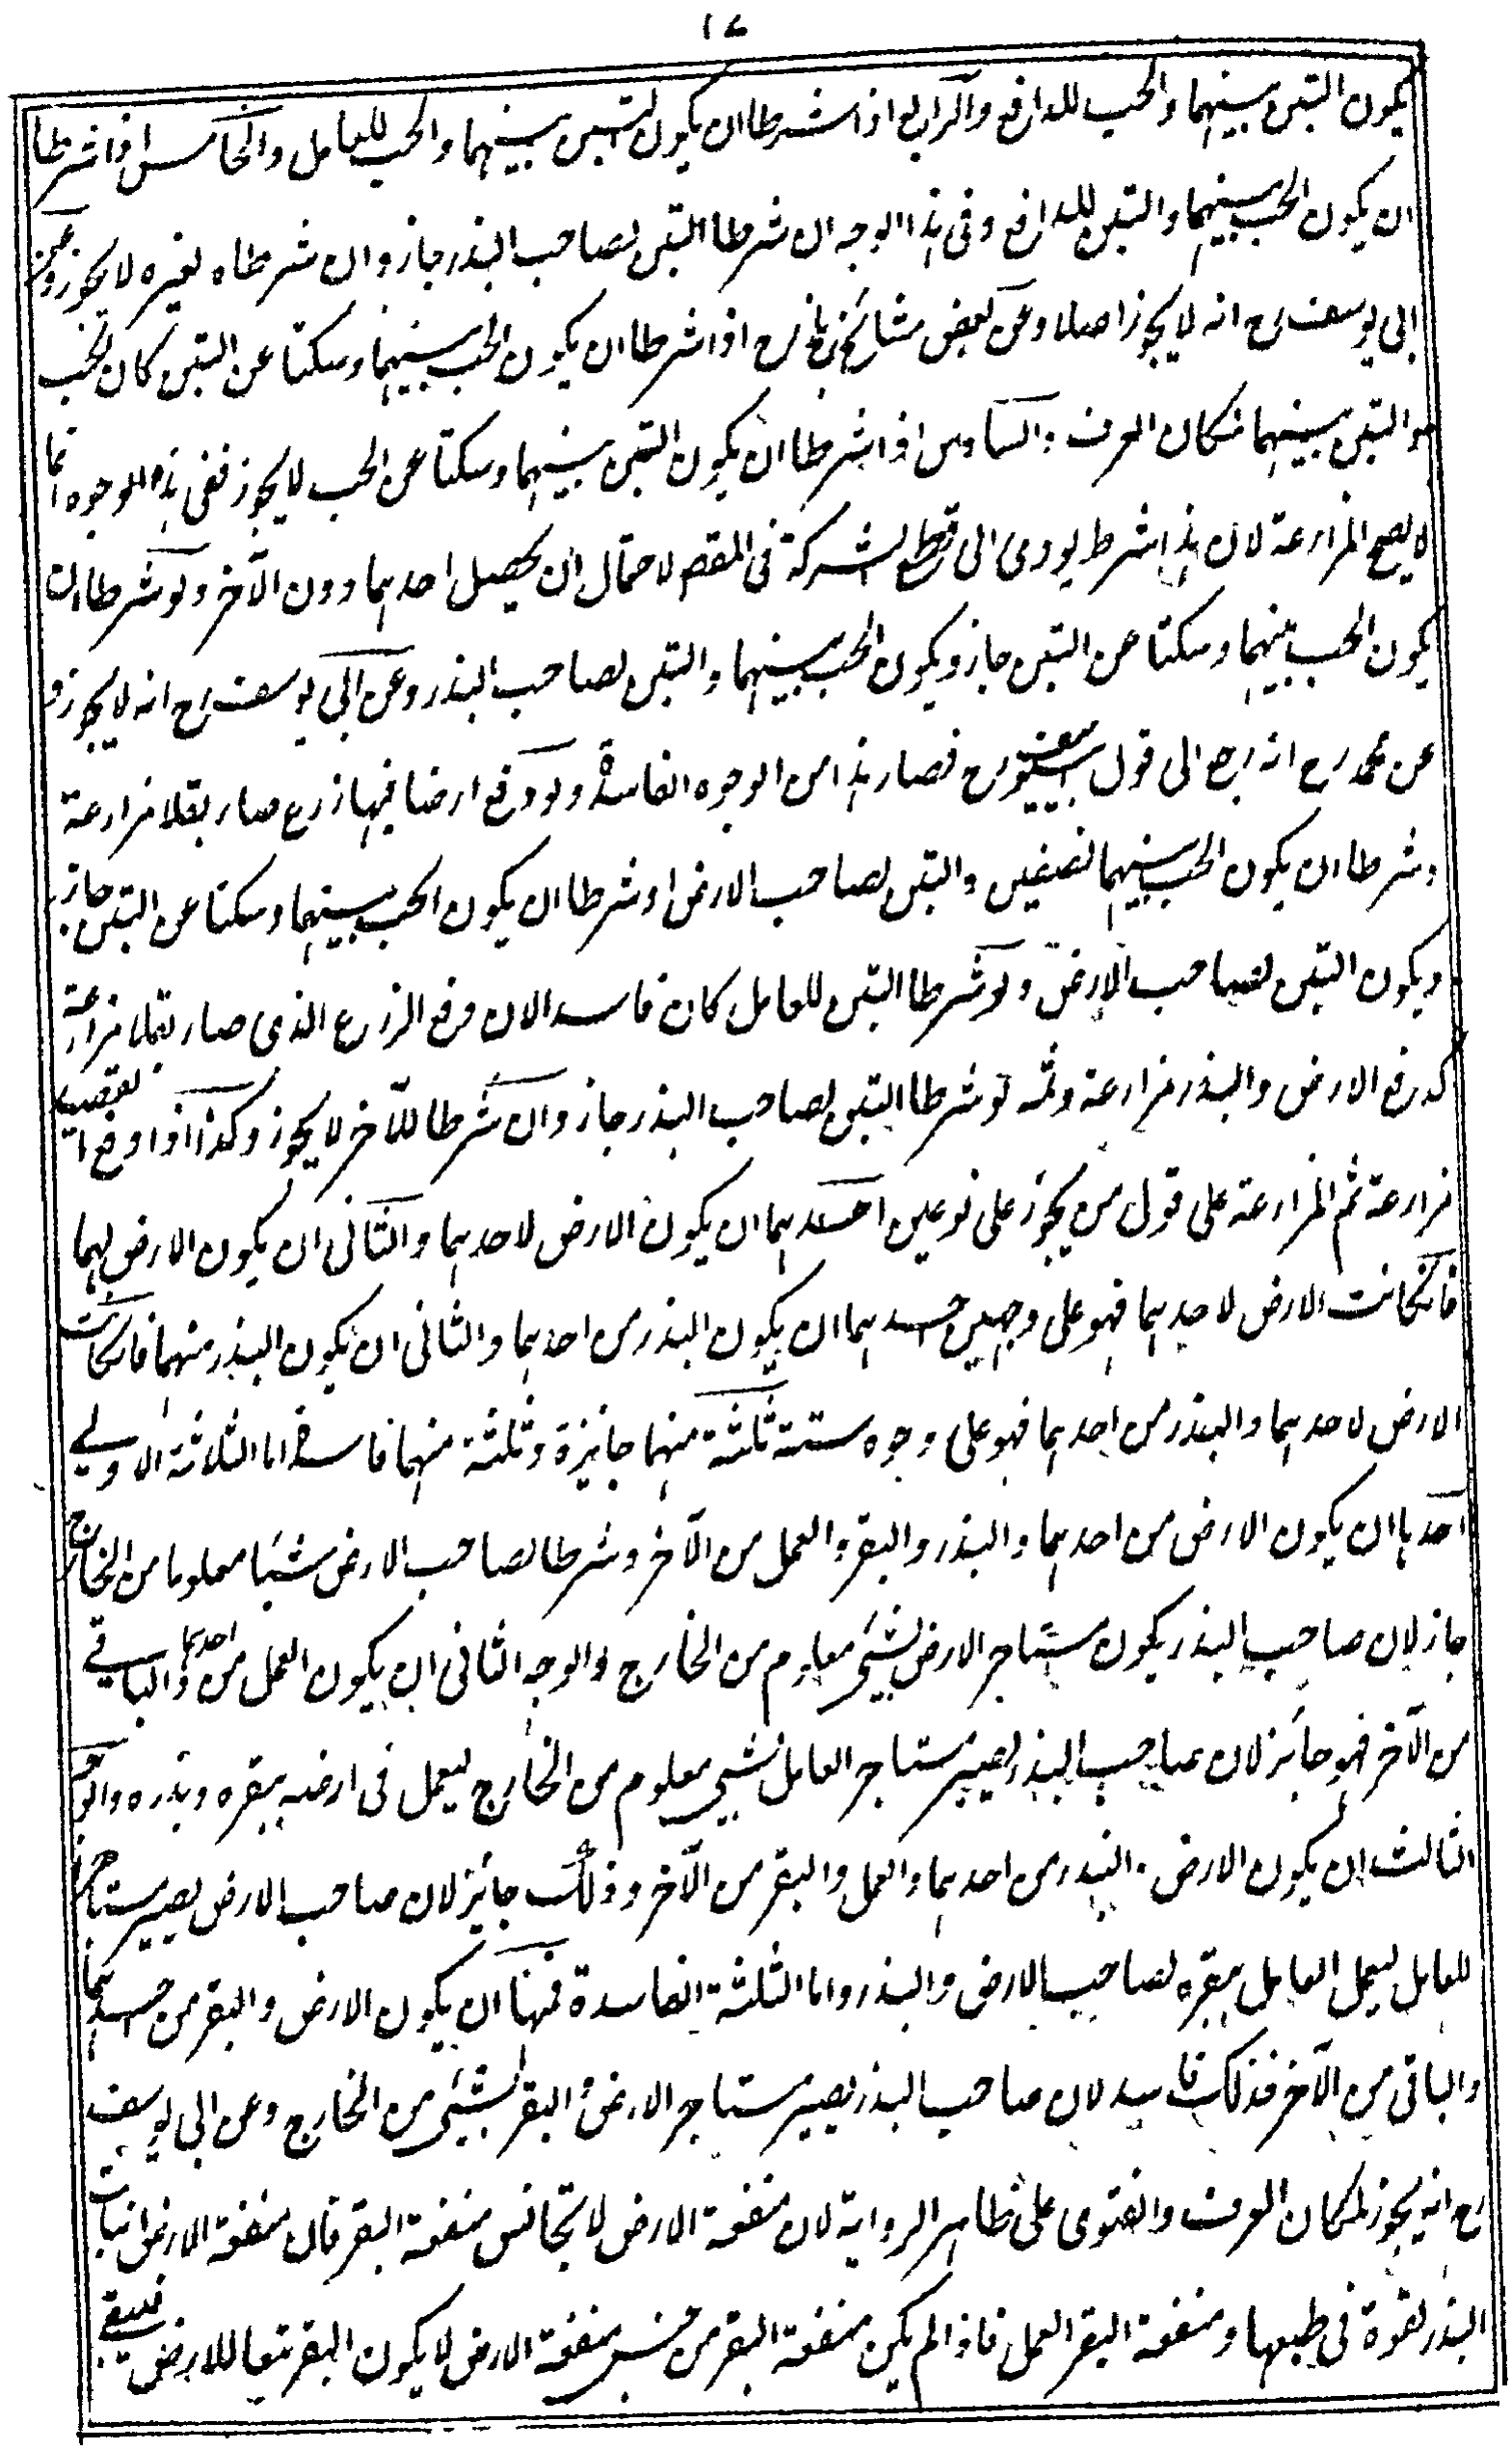 ١٧
يكون التبن بينهما والحب للدافع والرابع اذا شرطا ان يكون التبن بينهما والحب للعامل والخامس اذا شرطا
ان يكون الحب بينهما والتبن للدافع وفى هذا الوجه ان شرطا التبن لصاحب البذر جاز وان شرطاه لغيره لا يجوز وعن
ابى يوسف رح انه لا يجوز اصلا وعن بعض مشائخ بلخ رح اذا شرطا ان يكون الحب بينهما وسكتا عن التبن كان الحب
والتبن بينهما لمكان العرف والسادس اذا شرطا ان يكون التبن بينهما وسكتا عن الحب لا يجوز ففى هذه الوجوه انما
لا يصح المزارعة لان هذا شرط يودى الى قطع الشركة فى المقصد لاحتمال ان يحصل احدهما دون الآخر ولو شرطا ان
يكون الحب بينهما وسكتا عن التبن جاز ويكون الحب بينهما والتبن لصاحب البذر وعن ابى يوسف رح انه لا يجوز و
عن محمد رح انه رجع الى قول ابى يوسف رح فصار هذا من الوجوه الفاسدة ولو دفع ارضا فيها زرع صار بقلا مزارعة
وشرطا ان يكون الحب بينهما نصفين والتبن لصاحب الارض او شرطا ان يكون الحب بينهما وسكتا عن التبن جاز
ويكون التبن لصاحب الارض ولو شرطا التبن للعامل كان فاسدا لان دفع الزرع الذى صار بقلا مزارعة
كدفع الارض والبذر مزارعة وثمه لو شرطا التبن لصاحب البذر جاز وان شرطا للآخر لا يجوز وكذا اذا دفع القصيل
مزارعة ثم المزارعة على قول من يجوز على نوعين احدهما ان يكون الارض لاحدهما والثانى ان يكون الارض لهما
فانكانت الارض لاحدهما فهو على وجهين احدهما ان يكون البذر من احدهما والثانى ان يكون البذر منهما فانكانت
الارض لاحدهما والبذر من احدهما فهو على وجوه ستة ثلثة منها جايزة وثلثة منها فاسدة اما الثلاثة الاولى
احدها ان يكون الارض من احدهما والبذر والبقر والعمل من الآخر وشرطا لصاحب الارض شيئا معلوما من الخارج
جاز لان صاحب البذر يكون مستاجر الارض بشئ معلوم من الخارج والوجه الثانى ان يكون العمل من احدهما والباقى
من الآخر فهو جائز لان صاحب البذر يصير مستاجر العامل بشئ معلوم من الخارج ليعمل فى ارضه ببقره وبذره والوجه
الثالث ان يكون الارض والبذر من احدهما والعمل والبقر من الآخر وذلك جائز لان صاحب الارض يصير مستاجرا
للعامل ليعمل العامل ببقره لصاحب الارض والبذر واما الثلثة الفاسدة فمنها ان يكون الارض والبقر من احدهما
والباقى من الآخر فذلك فاسد لان صاحب البذر يصير مستاجر الارض والبقر بشئ من الخارج وعن ابى يوسف
رح انه يجوز لمكان العرف والفتوى على ظاهر الرواية لان منفعة الارض لا تجانس منفعة البقر فان منفعة الارض انبات
البذر لقوة فى طبعها ومنفعة البقر العمل فاذا لم يكن منفعة البقر من جنس منفعة الارض لا يكون البقر تبعا للارض فيبقى